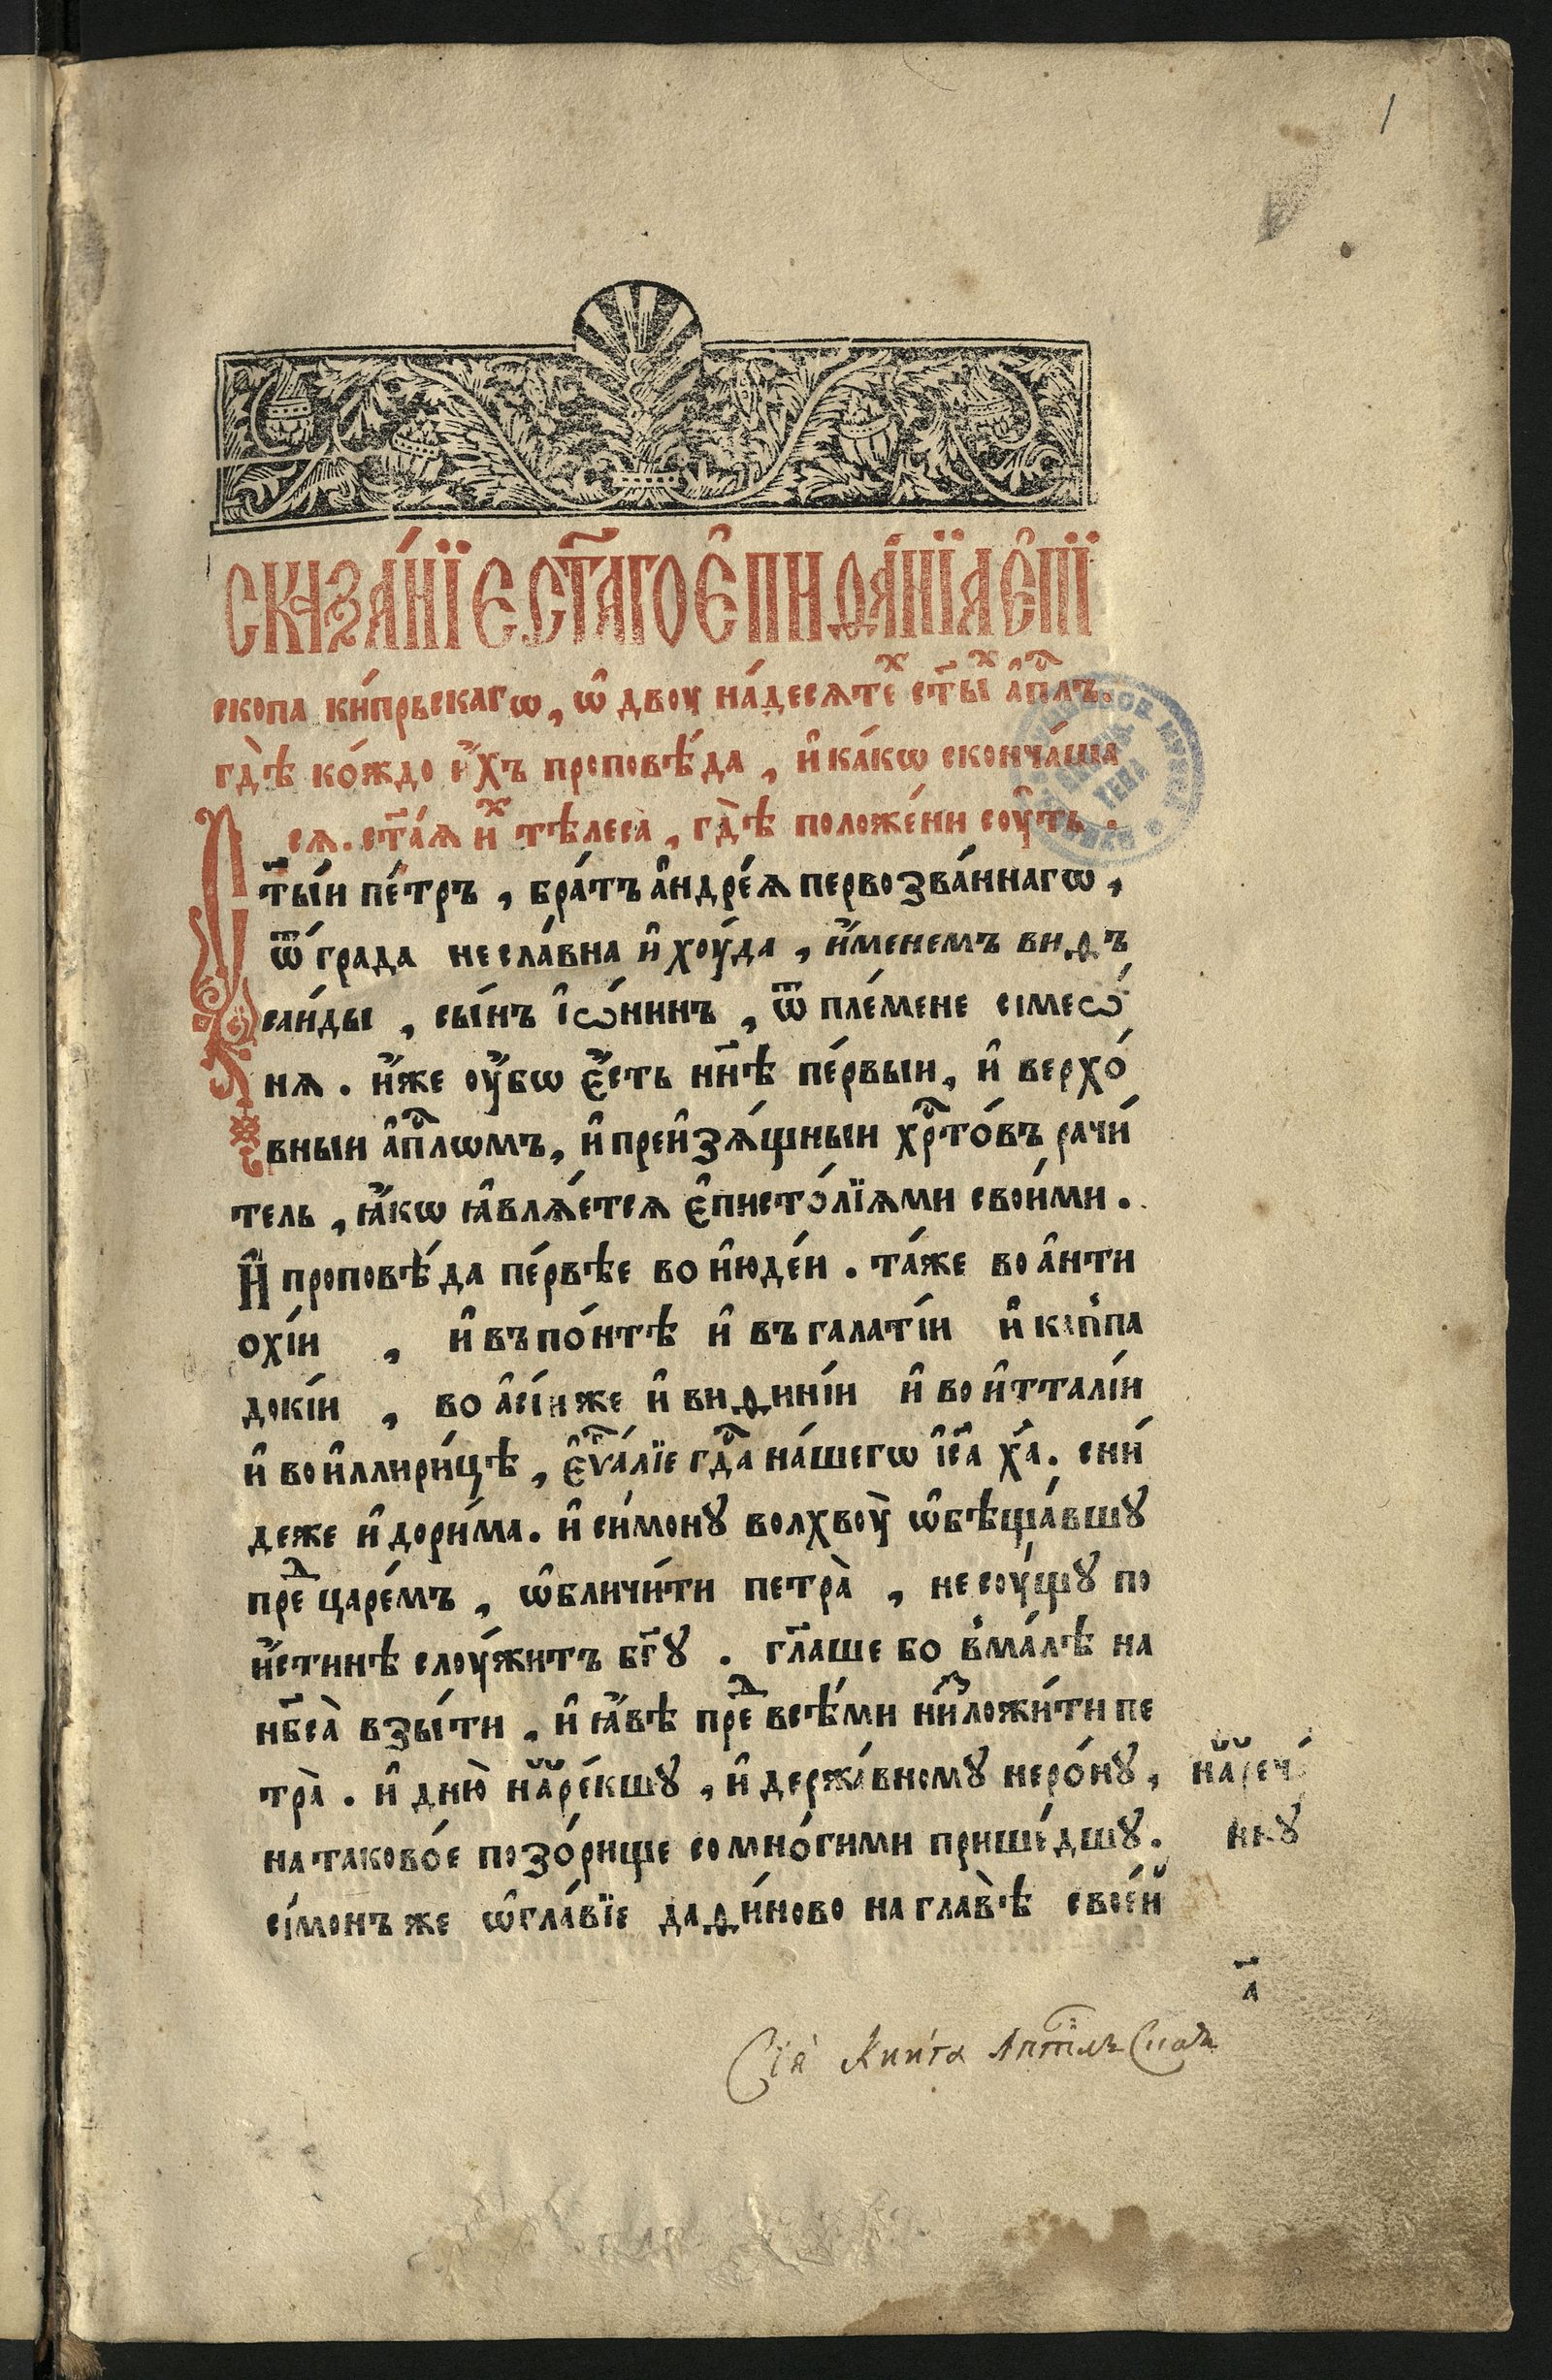 1
СКАЗА́НЇЕ СТ҃А́ГО Е҆ПИФА́НЇА Е҆ПЇ
скопа ки́прьскагѡ, ѡ҆ двоу на́десѧтеⷯ ст҃ыⷯ а҆пⷭ҇лъ.
гдѣ̀ ко́ждо и҆́хъ проповѣ́да, и҆ ка́кѡ сконча́ша
сѧ. ст҃а́ѧ и҆ⷯ тѣлеса̀, гдѣ̀ положе́ни соу҆́ть.
Ст҃ы́и пе́тръ, бра́тъ а҆ндре́ѧ первозва́ннагѡ,
ѿ гра́да несла́вна и҆ хоу́да, и҆́менемъ виѳъ
саи́ды, сы́нъ і҆ѡ́нинъ, ѿ пле́мене сімеѡ́
нѧ. и҆́же оу҆́бѡ є҆́сть нн҃ѣ пе́рвыи, и҆ верхо́
вныи а҆пⷭ҇лѡмъ, и҆ преи҆зѧ́щныи хрⷭ҇то́въ рачи́
тель, ꙗ҆́кѡ ꙗ҆влѧ́етсѧ є҆писто́лїѧми свои́ми.
И҆ проповѣ́да пе́рвѣе во и҆юде́и. та́же во а҆нти
охі́и, и҆ въ по́нтѣ и҆ въ галаті́и и҆ каппа
докі́и, во а҆сі́и же и҆ виѳині́и и҆ во и҆тталі́и
и҆ во и҆ллири́цѣ, є҆ѵⷢ҇а́лїе гдⷭ҇а на́шегѡ і҆с҃а х҃а. сни́
деже и҆ дори́ма. и҆ си́монꙋ волхвоу̀ ѡ҆бѣща́вшꙋ
преⷣ царе́мъ, ѡ҆бличи́ти петра̀, не соу́щꙋ по
и҆́стинѣ слоу́житъ бг҃ꙋ. гл҃аше бо в̾ма́лѣ на
нб҃са̀ взы́ти, и҆ ꙗ҆́вѣ преⷣ всѣ́ми ниⷥложи́ти пе
тра̀. и҆ дню̀ наре́кшꙋ, и҆ держа́вномꙋ неро́нꙋ,
на таково́е позо́рище со мно́гими прише́дшꙋ.
сі́монъ же ѡ҆сла́вїе даѳи́ново на главѣ̀ свое́й
нарече́
нꙋ
а҃
Сїя̀ Кни́га Апⷭ҇тлъ